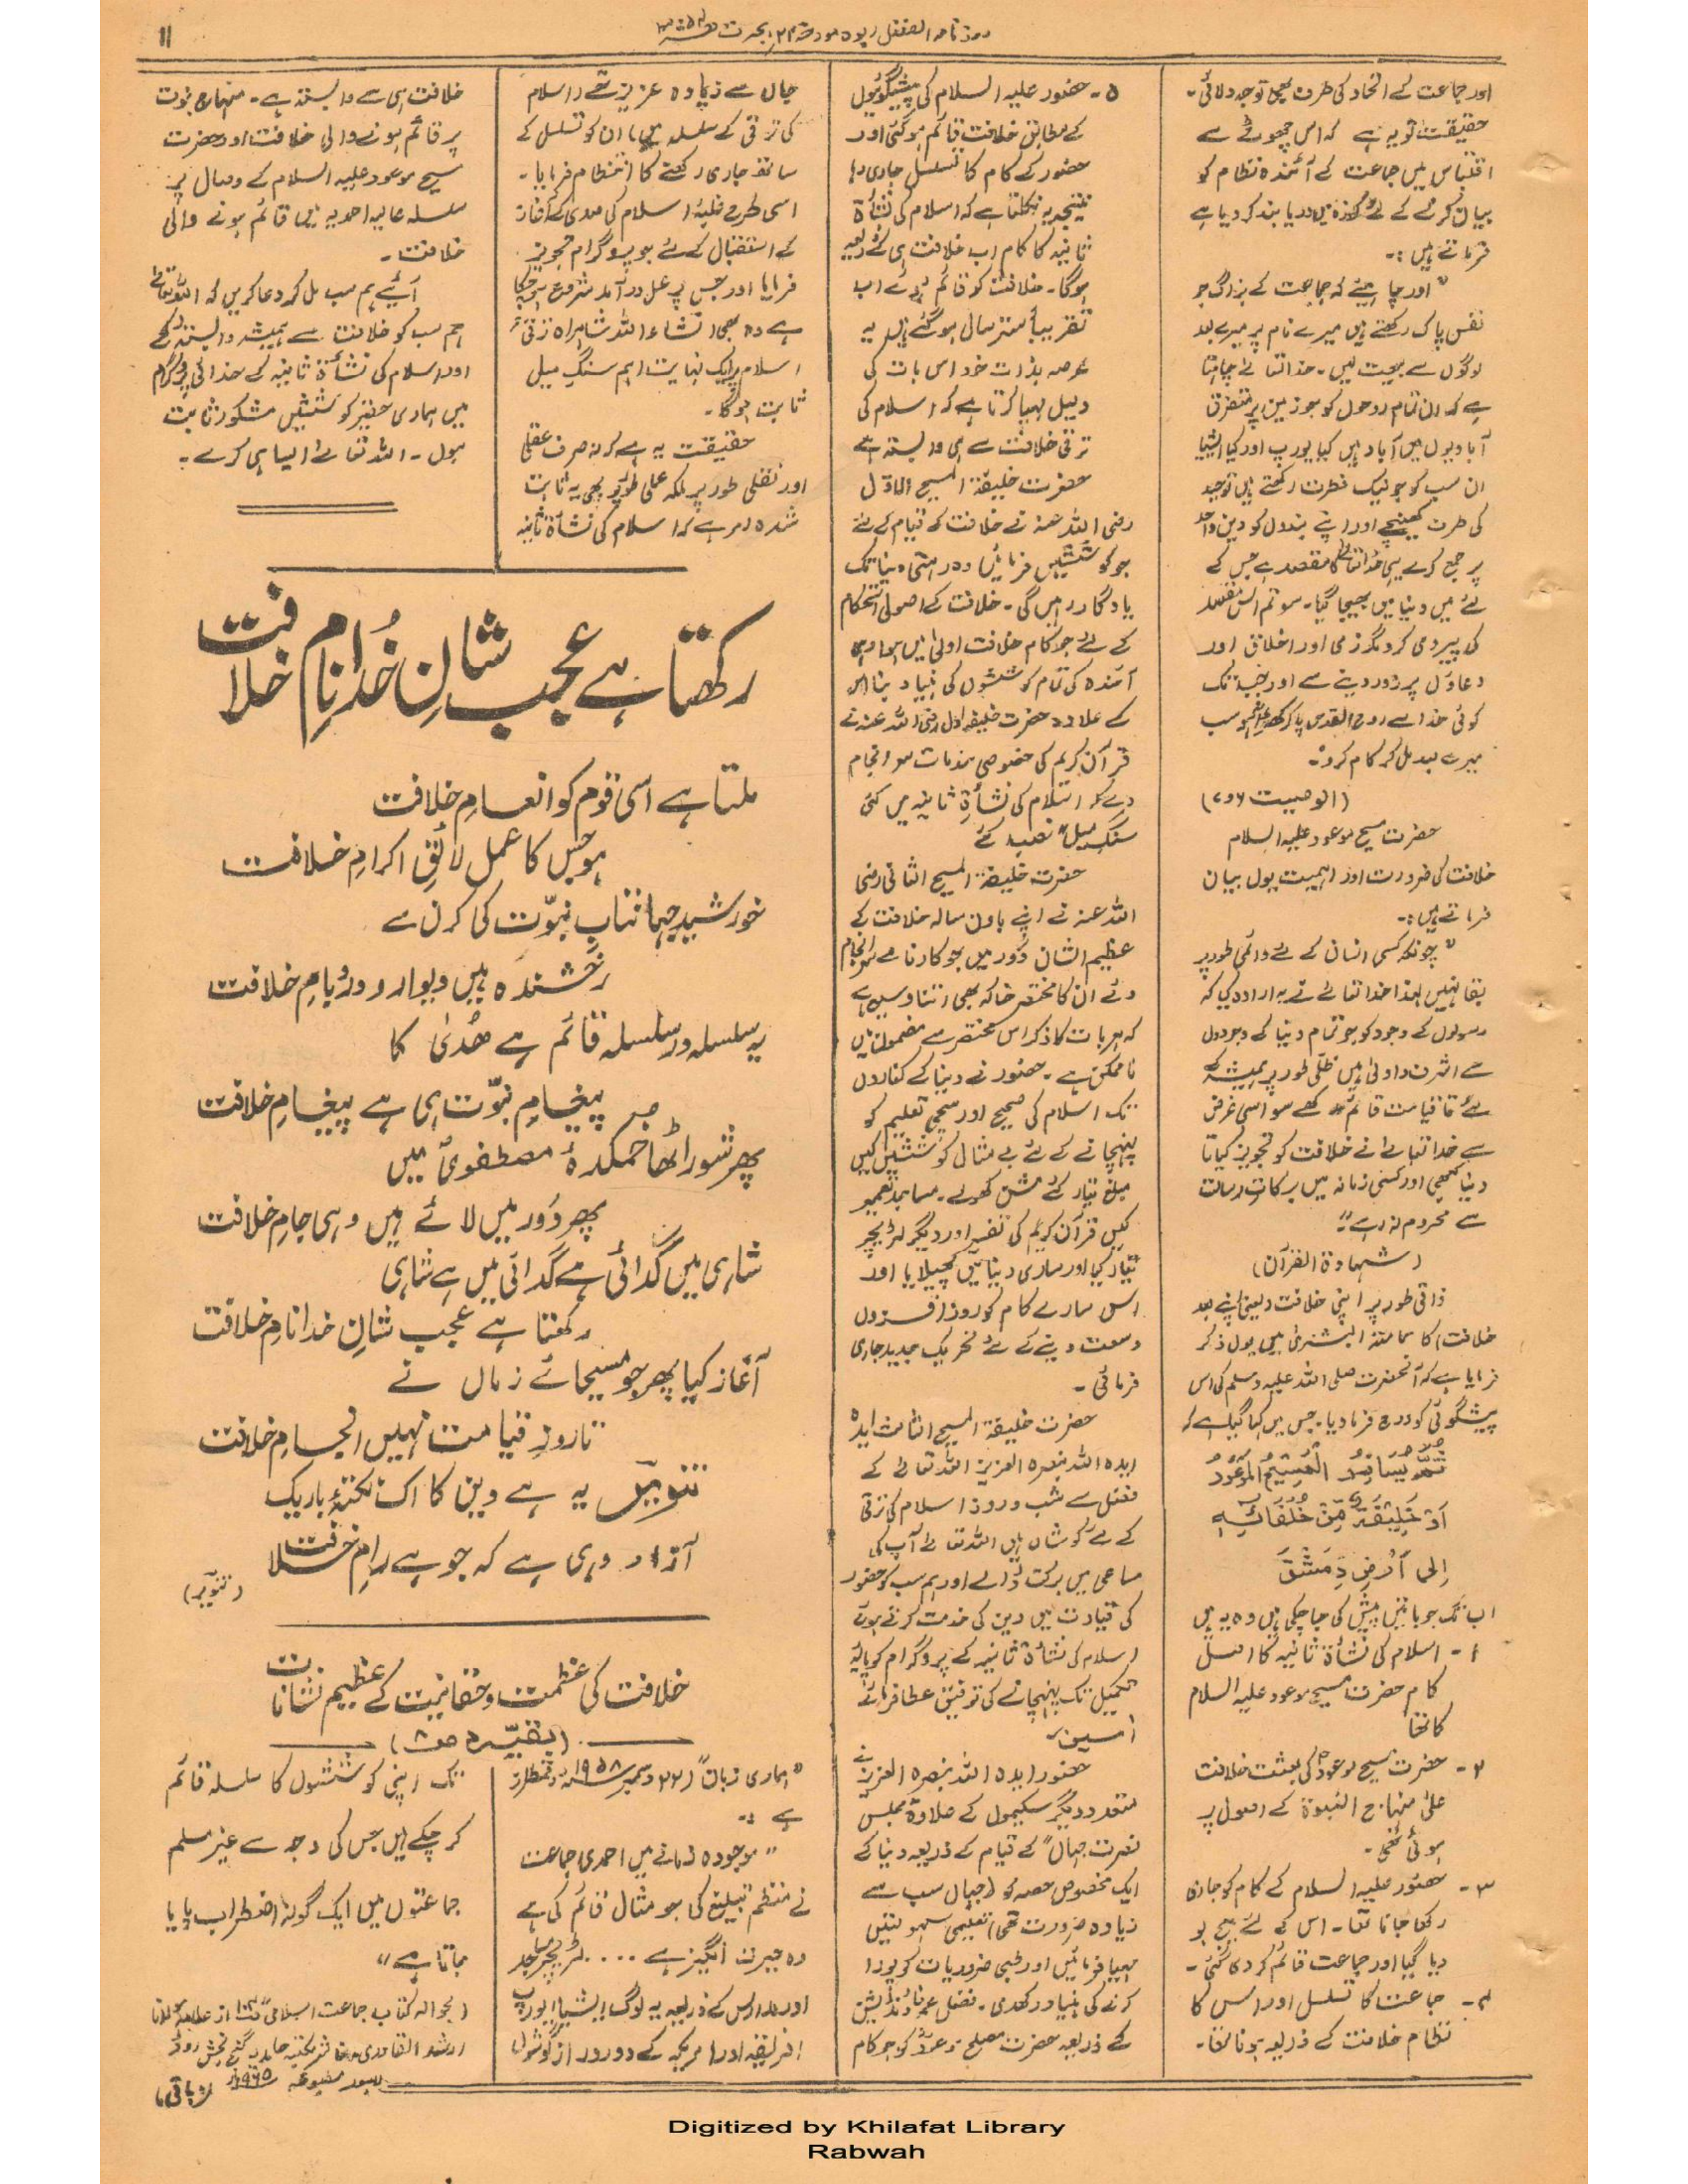 روزنامہ الفضل ربوہ مورخہ ۲۴ ہجرت
۱۱
اور جماعت کے اتحاد کی طرف بھی توجہ دلائی۔
حقیقت تو یہ ہے کہ اس چھوٹے سے
اقتباس میں جماعت کے آئندہ نظام کو
بیان کرنے کے لئے کوزہ میں دریا بند کر دیا ہے
فرماتے ہیں :۔
"اور چاہیئے کہ جماعت کے بزرگ جو
نفس پاک رکھتے ہیں میرے نام پر میرے بعد
لوگوں سے بیعت لیں۔ خدا تعالیٰ چاہتا
ہے کہ ان تمام روحوں کو جو زمین پر متفرق
آبادیوں میں آباد ہیں کیا یورپ اور کیا ایشیا
ان سب کو جو نیک فطرت رکھتے ہیں توحید
کی طرف کھینچے اور اپنے بندوں کو دین واحد
پر جمع کرے یہی خدا تعالیٰ کا مقصد ہے جس کے
لئے میں دنیا میں بھیجا گیا۔ سو تم اس مقصد
کی پیروی کرو مگر نرمی اور اخلاق اور
دعاؤں پر زور دینے سے اور جب تک
کوئی خدا سے روح القدس پا کر کھڑا نہ ہو سب
میرے بعد مل کر کام کرو"۔
(الوصیت ۶و۷)
حضرت مسیح موعود علیہ السلام
خلافت کی ضرورت اور اہمیت یوں بیان
فرماتے ہیں :۔
"چونکہ کسی انسان کے لئے دائمی طور پر
بقا نہیں لہذا خدا تعالیٰ نے یہ ارادہ کیا کہ
رسولوں کے وجود کو جو تمام دنیا کے وجودوں
سے اشرف و اولیٰ ہیں ظلی طور پر ہمیشہ کے
لئے تا قیامت قائم رکھے سو اسی غرض
سے خدا تعالیٰ نے خلافت کو تجویز کیا تا
دنیا کبھی اور کسی زمانہ میں برکات رسالت
سے محروم نہ رہے"۔
(شہادۃ القرآن)
ذاتی طور پر اپنی خلافت (یعنی اپنے بعد
خلافت) کا حمامۃ البشریٰ میں یوں ذکر
فرمایا ہے کہ آنحضرت صلی اللہ علیہ وسلم کی اس
پیشگوئی کو درج فرما دیا۔ جس میں کہا گیا ہے کہ
ثُمَّ یُسَافِرُ الْمَسِیْحُ الْمَوْعُوْدُ
اَوْ خَلِیْفَۃٌ مِّنْ خُلَفَائِہٖ
اِلیٰ اَرْضِ دِمَشْقَ
اب تک جو باتیں پیش کی جا چکی ہیں وہ یہ ہیں
۱۔ اسلام کی نشأۃ ثانیہ کا اصل
کام حضرت مسیح موعود علیہ السلام
کا تھا
۲۔ حضرت مسیح موعودؑ کی بعثت خلافت
علیٰ منہاج النبوۃ کے اصول پر
ہوئی تھی۔
۳۔ حضور علیہ السلام کے کام کو جاری
رکھا جانا تھا۔ اس کے لئے بیج بو
دیا گیا اور جماعت قائم کر دی گئی۔
۴۔ جماعت کا تسلسل اور اس کا
نظام خلافت کے ذریعہ ہونا تھا۔
۵۔ حضور علیہ السلام کی پیشگوئیوں
کے مطابق خلافت قائم ہو گئی اور
حضور کے کام کا تسلسل جاری رہا
نتیجہ یہ نکلتا ہے کہ اسلام کی نشأۃ
ثانیہ کا کام اب خلافت ہی کے ذریعہ
ہوگا۔ خلافت کو قائم ہوئے اب
تقریباً ستر سال ہو گئے ہیں یہ
عرصہ بذات خود اس بات کی
دلیل مہیا کرتا ہے کہ اسلام کی
ترقی خلافت سے ہی وابستہ ہے
حضرت خلیفۃ المسیح الاوّل
رضی اللہ عنہ نے خلافت کے قیام کے لئے
جو کوششیں فرمائیں وہ رہتی دنیا تک
یادگار رہیں گی۔ خلافت کے اصولی استحکام
کے لئے جو کام خلافت اولیٰ میں ہوا وہی
آئندہ کی تمام کوششوں کی بنیاد بنا اس
کے علاوہ حضرت خلیفہ اول رضی اللہ عنہ نے
قرآن کریم کی خصوصی خدمات سر انجام
دے کر اسلام کی نشأۃ ثانیہ میں کئی
سنگ میل" نصب کئے
حضرت خلیفۃ المسیح الثانی رضی
اللہ عنہ نے اپنے باون سالہ خلافت کے
عظیم الشان دَور میں جو کارنامے سر انجام
دئے ان کا مختصر خاکہ بھی اتنا وسیع ہے
کہ ہر بات کا ذکر اس مختصر سے مضمون میں
ناممکن ہے۔ حضور نے دنیا کے کناروں
تک اسلام کی صحیح اور سچی تعلیم کو
پہنچانے کے لئے بے مثال کوششیں کیں
مبلغ تیار کئے مشن کھولے۔ مساجد تعمیر
کیں قرآن کریم کی تفسیر اور دیگر لٹریچر
تیار کیا اور ساری دنیا میں پھیلایا اور
اس سارے کام کو روز افزوں
وسعت دینے کے لئے تحریک جدید جاری
فرمائی۔
حضرت خلیفۃ المسیح الثالث ایدہ
ایدہ اللہ بنصرہ العزیز اللہ تعالیٰ کے
فضل سے شب و روز اسلام کی ترقی
کے لئے کوشاں ہیں اللہ تعالیٰ آپ کی
مساعی میں برکت ڈالے اور ہم سب کو حضور
کی قیادت میں دین کی خدمت کرتے ہوئے
اسلام کی نشأۃ ثانیہ کے پروگرام کو پایہ
تکمیل تک پہنچانے کی توفیق عطا فرمائے
آمین۔
حضور ایدہ اللہ بنصرہ العزیز نے
متعدد دیگر سکیموں کے علاوہ مجلس
نصرت جہاں" کے قیام کے ذریعہ دنیا کے
ایک مخصوص حصہ کو (جہاں سب سے
زیادہ ضرورت تھی) تعلیمی سہولتیں
مہیا فرمائیں اور طبی ضروریات کو پورا
کرنے کی بنیاد رکھدی۔ فضل عمر فاؤنڈیشن
کے ذریعہ حضرت مصلح موعودؓ کو جو کام
جاں سے زیادہ عزیز تھے (اسلام
کی ترقی کے سلسلہ میں) ان کو تسلسل کے
ساتھ جاری رکھنے کا انتظام فرمایا۔
اسی طرح غلبۂ اسلام کی صدی کے آغاز
کے استقبال کے لئے جو پروگرام تجویز
فرمایا اور جس پر عمل درآمد شروع ہو چکا
ہے وہ بھی انشاء اللہ شاہراہ ترقیٔ
اسلام پر ایک نہایت اہم سنگ میل
ثابت ہوگا۔
حقیقت یہ ہے کہ نہ صرف عقلی
اور نقلی طور پر بلکہ عملی طور پر بھی یہ ثابت
شدہ امر ہے کہ اسلام کی نشأۃ ثانیہ
خلافت ہی سے وابستہ ہے۔ منہاج نبوت
پر قائم ہونے والی خلافت اور حضرت
مسیح موعود علیہ السلام کے وصال پر
سلسلہ عالیہ احمدیہ میں قائم ہونے والی
خلافت۔
آئیے ہم سب مل کر دعا کریں کہ اللہ تعالیٰ
ہم سب کو خلافت سے ہمیشہ وابستہ رکھے
اور اسلام کی نشأۃ ثانیہ کے خدائی پروگرام
میں ہماری حقیر کوششیں مشکور ثابت
ہوں۔ اللہ تعالیٰ ایسا ہی کرے۔
رکھتا ہے عجب شانِ خُدا نامِ خلافت
ملتا ہے اسی قوم کو انعامِ خلافت
ہو جس کا عمل لائقِ اکرامِ خلافت
خورشیدِ جہاں تابِ نبوّت کی کرن سے
رخشندہ ہیں دیوار و در و بامِ خلافت
یہ سلسلہ در سلسلہ قائم ہے ھُدیٰ کا
پیغامِ نبوّت ہی ہے پیغامِ خلافت
پھر شور اٹھا خمکدۂ مصطفویؐ میں
پھر دَور میں لائے ہیں وہی جامِ خلافت
شاہی میں گدائی ہے گدائی میں ہے شاہی
رکھتا ہے عجب شانِ خدا نامِ خلافت
آغاز کیا پھر جو مسیحائے زماں نے
تا روزِ قیامت نہیں انجامِ خلافت
تنویرؔ یہ ہے دین کا اک نکتۂ باریک
آزاد وہی ہے کہ جو ہے رامِ خلافت
(تنویر)
خلافت کی عظمت و حقانیت کے عظیم نشانات
(بقیہ صفحہ ۸)
"ہماری زبان" (۲۲ دسمبر ۱۹۵۸ء) رقمطراز
ہے :۔
"موجودہ زمانے میں احمدی جماعت
نے منظم تبلیغ کی جو مثال قائم کی ہے
وہ حیرت انگیز ہے .... لٹریچر مساجد
اور مدارس کے ذریعہ یہ لوگ ایشیا یورپ
افریقہ اور امریکہ کے دور دراز گوشوں
تک اپنی کوششوں کا سلسلہ قائم
کر چکے ہیں جس کی وجہ سے غیر مسلم
جماعتوں میں ایک گونہ اضطراب پایا
جاتا ہے"
(بحوالہ کتاب جماعت اسلامی از علامہ مولانا
ارشد القادری ناشر مکتبہ حامدیہ گنج بخش روڈ
لاہور مطبوعہ ۱۹۶۵ء) (باقی)
Digitized by Khilafat Library
Rabwah